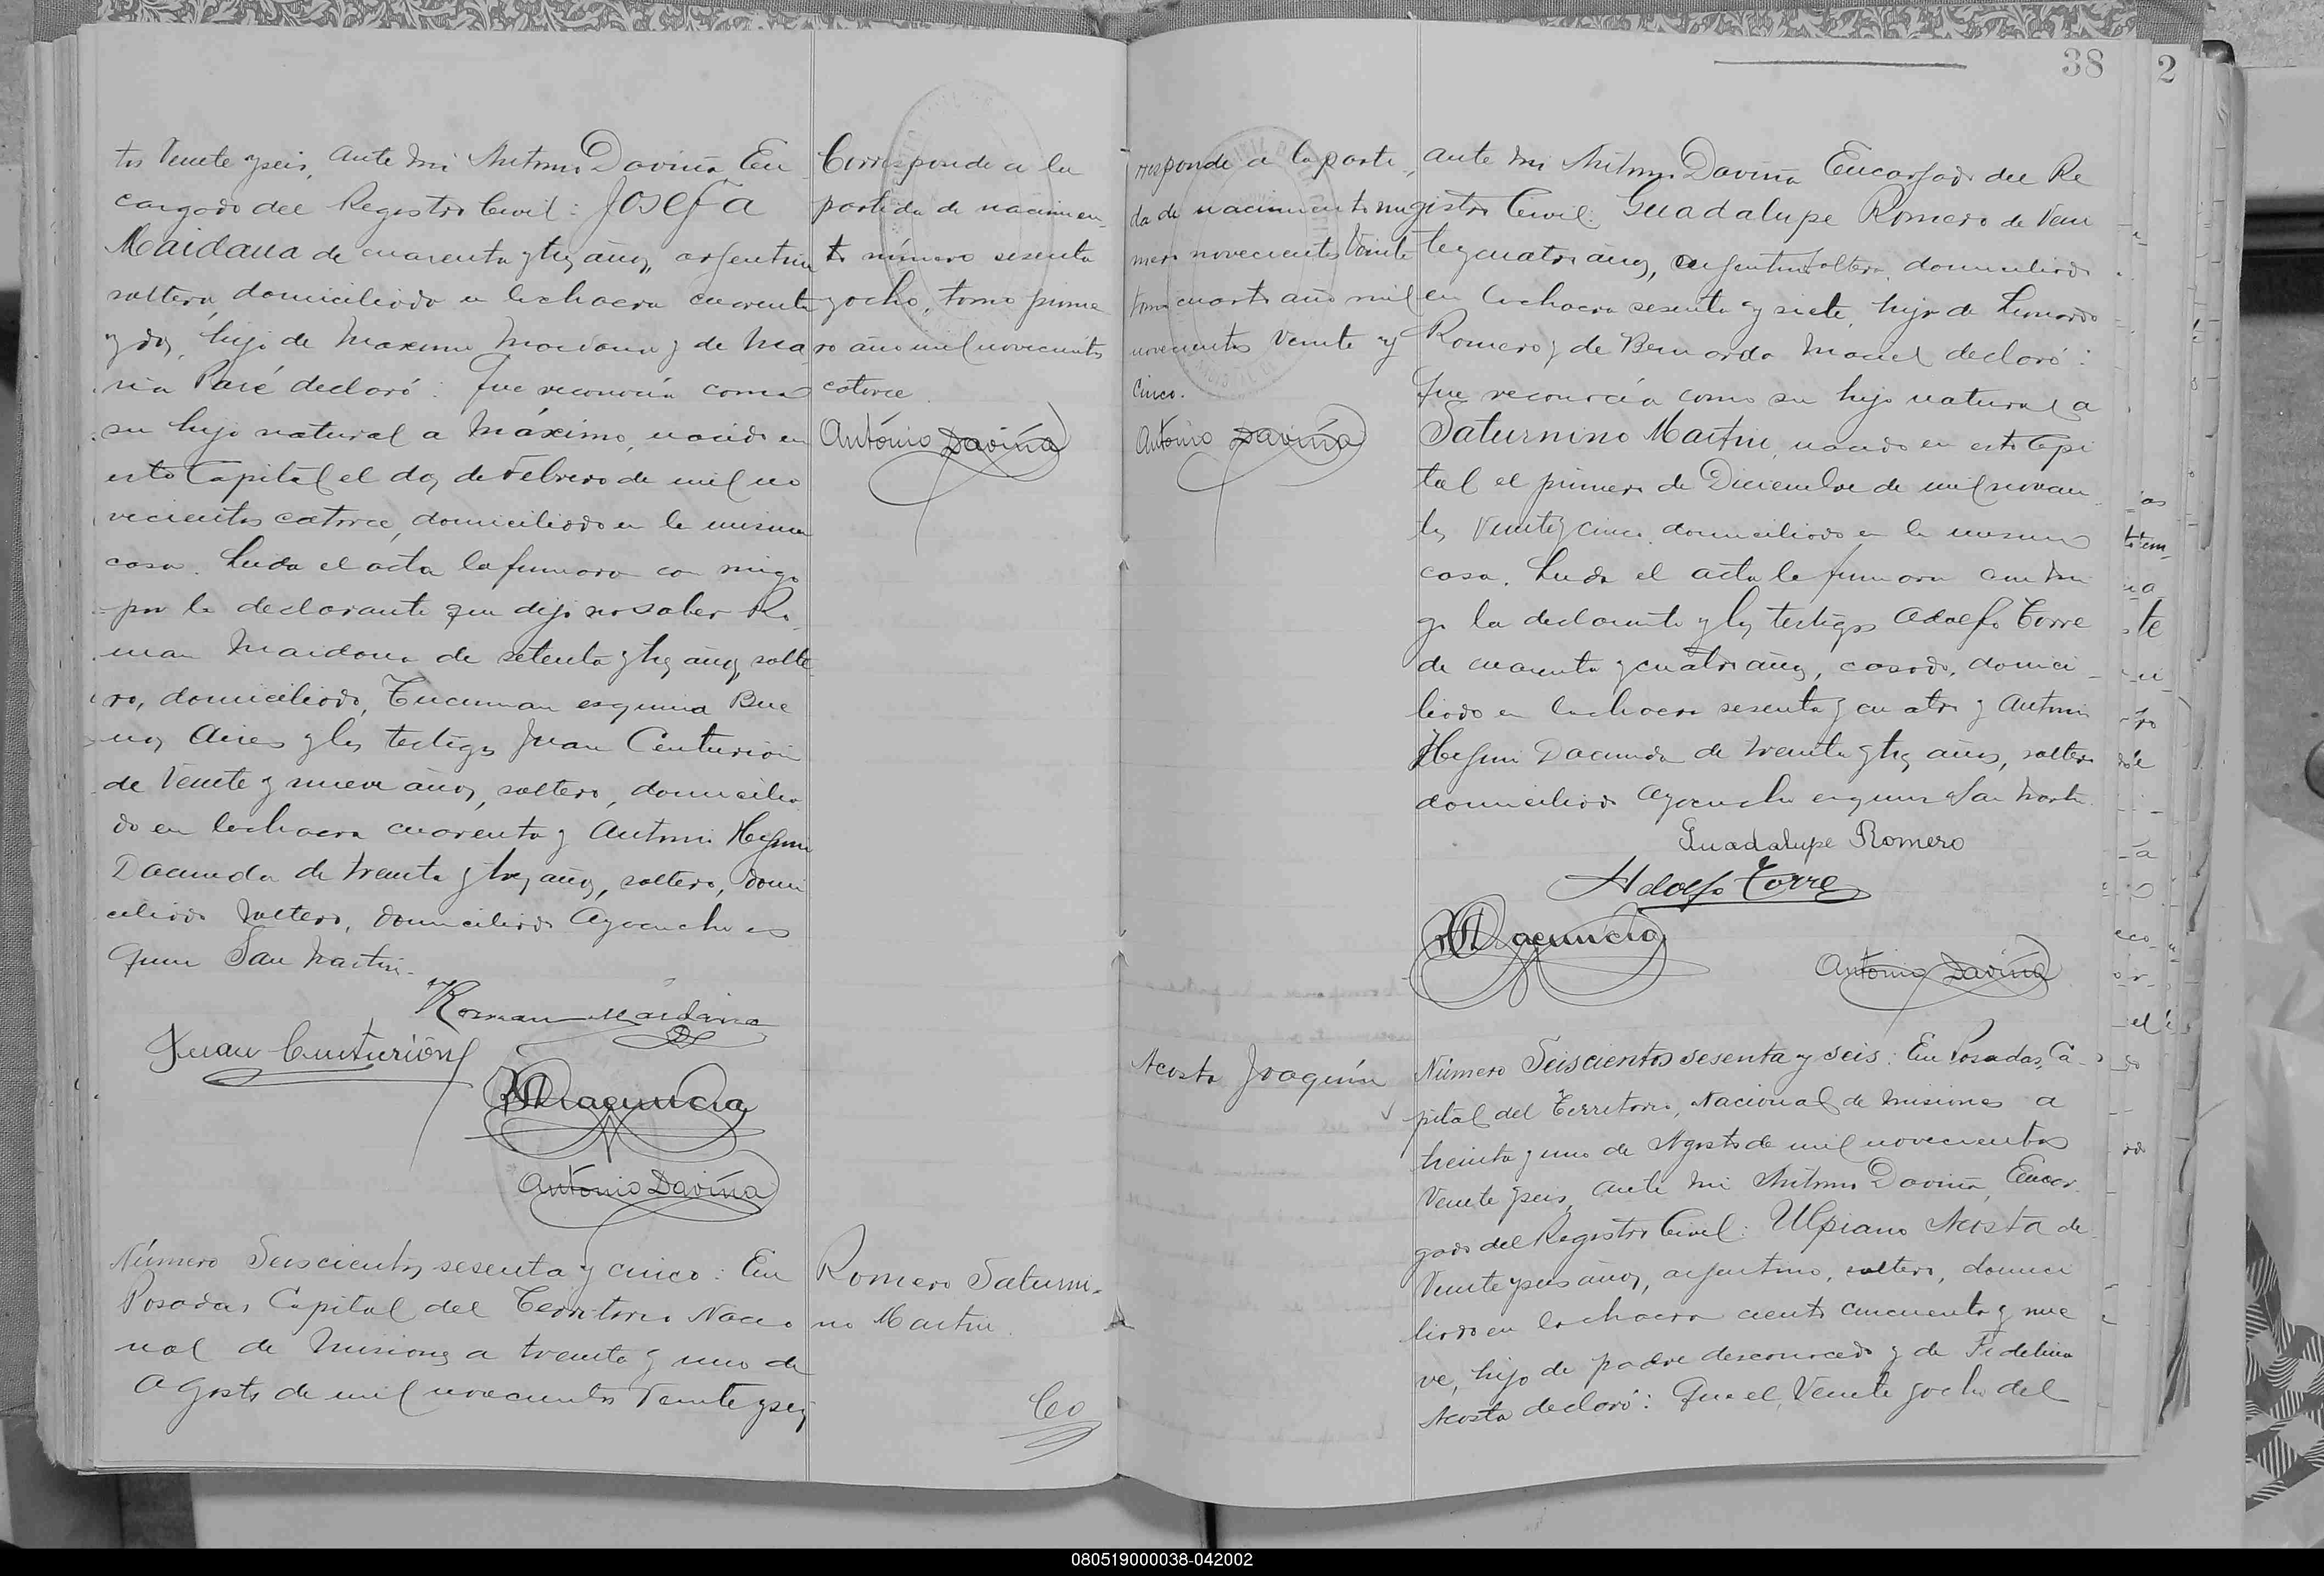 tos Veinte y seis, ante mi Antonio Daviña En
cargado del Registro Civil: Josefa
Maidana de cuarenta y tres años, argentina
soltera, domiciliada en la chacra cuarenta
y dos, hija de Maximo Maidana y de Ma
ria Paré declaró: Que reconocía como
su hijo natural a Máximo, nacido en
esta Capital el dos de Febrero de mil no
vecientos catorce, domiciliado en la misma
casa. Leida el acta la firmaron con migo
por la declarante que dijo no saber Ro
man Maidana de setenta y tres años, solte
ro, domiciliado, Tucuman esquina Bue
nos Aires y los testigos Juan Centurión
de Veinte y nueve años, soltero, domicilia
do en la chacra cuarenta y Antonio Higini
Dacunda de treinta y tres años, soltero, domi
ciliado soltero, domiciliado Ayacucho es
quina San Martin.
Roman Maidana
Juan Centurión
Antonio Daviña
Número Seiscientos sesenta y cinco: En
Posadas Capital del Territorio Nacio
nal de Misiones a treinta y uno de
Agosto de mil novecientos Veinte y seis
Corresponde a la
partida de nacimien-
to número sesenta
y ocho, tomo prime
ro año mil novecientos
catorce.
Antonio Daviña
Romero Saturni-
no Martin.
Co
38
2
rresponde a la parti
da de nacimiento nu
mero novecientos Veinte
tomo cuarto año mil
novecientos Veinte y
Cinco.
Antonio Daviña
Acosta Joaquín
ante mi Antonio Daviña Encargado del Re
gistro Civil: Guadalupe Romero de Vein
te y cuatro años, argentina soltera, domiciliada
en la chacra sesenta y siete, hija de Leonardo
Romero y de Bernarda Maciel declaró:
Que reconocía como su hijo natural a
Saturnino Martin, nacido en esta Capi
tal el primero de Diciembre de mil novecien
tos Veinte y cinco, domiciliado en la misma
casa. Leida el acta la firmaron con mi
go la declarante y los testigos Adolfo Torre
de cuarenta y cuatro años, casado, domici-
liado en la chacra sesenta y cuatro y Antonio
Higini Dacunda de treinta y tres años, soltero
domiciliado Ayacucho esquina San Martin.
Guadalupe Romero
Adolfo Torre
Antonio Daviña
Número Seiscientos sesenta y seis: En Posadas, Ca-
pital del Territorio, Nacional de Misiones a
treinta y uno de Agosto de mil novecientos
Veinte y seis, ante mi Antonio Daviña, Encar-
gado del Registro Civil: Ulpiano Acosta de
Veinte y seis años, argentino, soltero, domici
liado en la chacra ciento cincuenta y nue
ve, hijo de padre desconocido y de Fidelina
Acosta declaró: Que el Veinte y ocho del
080519000038-042002